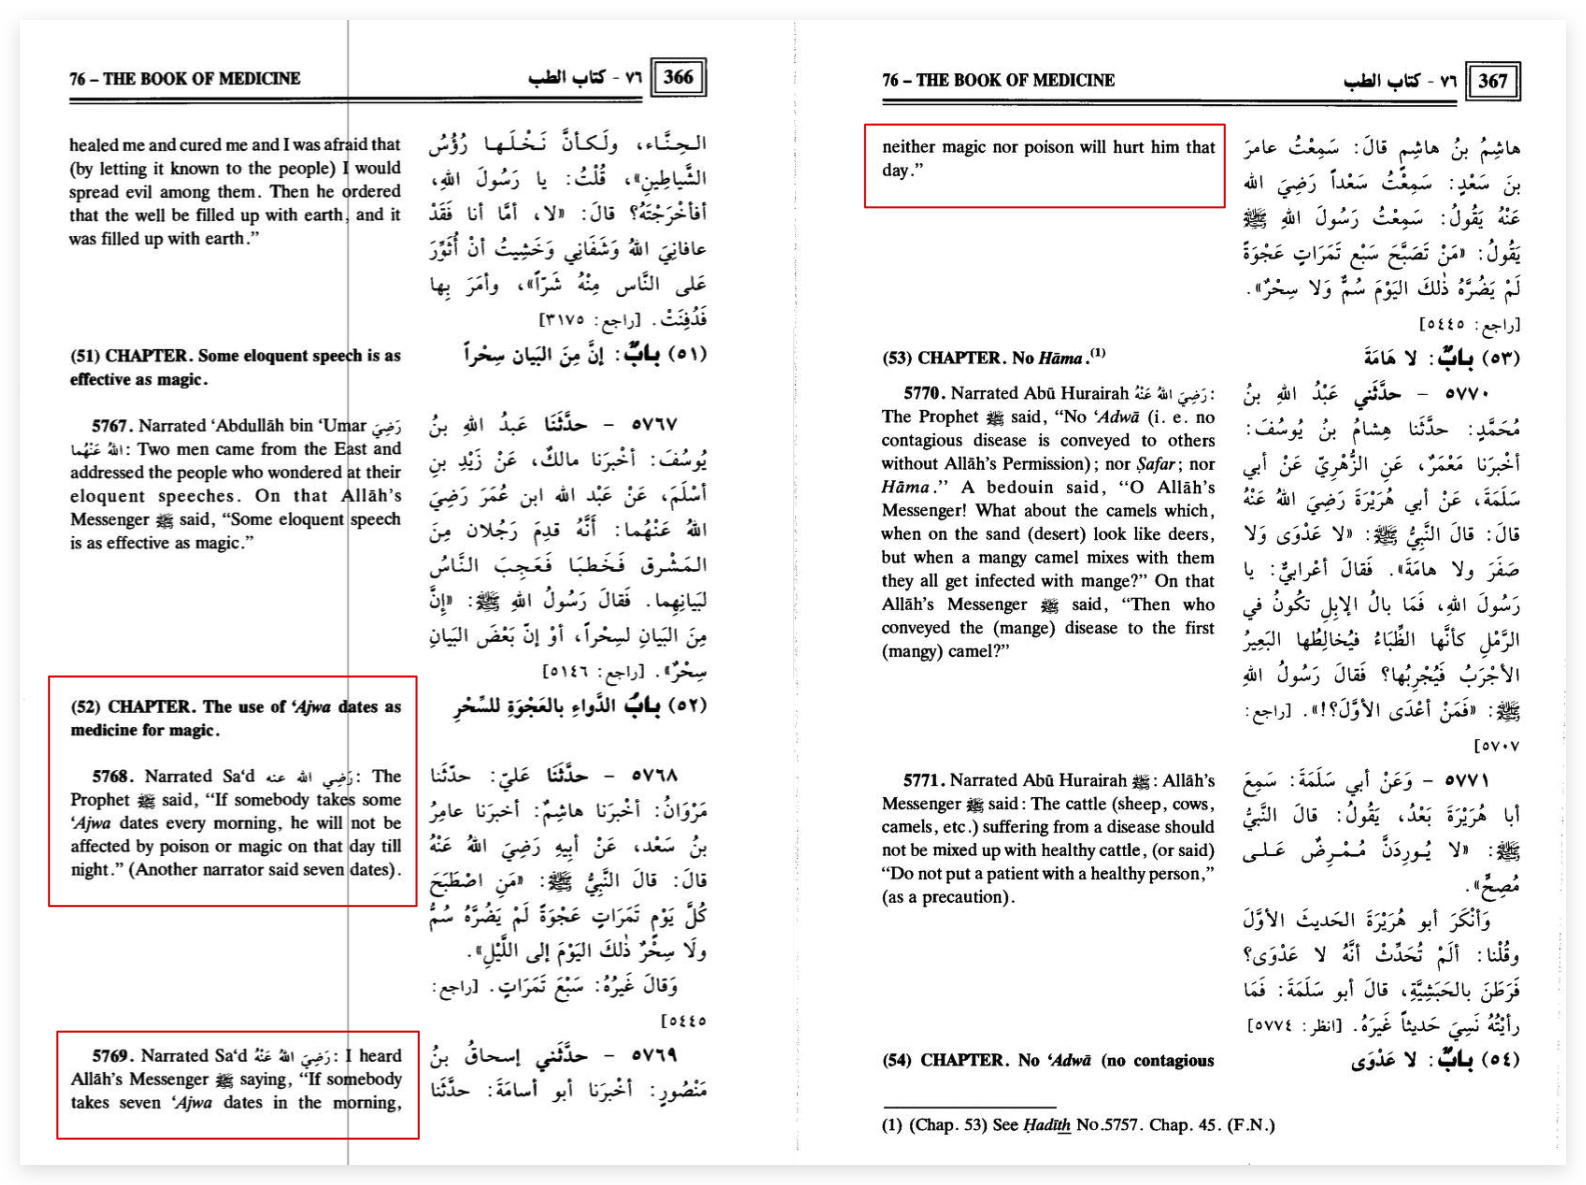 76 – THE BOOK OF MEDICINE
٧٦ - كتاب الطب
366
healed me and cured me and I was afraid that
(by letting it known to the people) I would
spread evil among them. Then he ordered
that the well be filled up with earth, and it
was filled up with earth.”
(51) CHAPTER. Some eloquent speech is as
effective as magic.
5767. Narrated ‘Abdullāh bin ‘Umar رَضِيَ
اللهُ عَنْهُما: Two men came from the East and
addressed the people who wondered at their
eloquent speeches. On that Allāh’s
Messenger ﷺ said, “Some eloquent speech
is as effective as magic.”
(52) CHAPTER. The use of ‘Ajwa dates as
medicine for magic.
5768. Narrated Sa‘d رَضِي الله عنه: The
Prophet ﷺ said, “If somebody takes some
‘Ajwa dates every morning, he will not be
affected by poison or magic on that day till
night.” (Another narrator said seven dates).
5769. Narrated Sa‘d رَضِيَ اللهُ عَنْهُ: I heard
Allāh’s Messenger ﷺ saying, “If somebody
takes seven ‘Ajwa dates in the morning,
الحِنَّاء، ولَكأنَّ نَخْلَها رُؤُسُ
الشَّياطِينِ»، قُلْتُ: يا رَسُولَ اللهِ،
أفأخْرَجْتَهُ؟ قالَ: «لا، أمَّا أنا فَقَدْ
عافانِيَ اللهُ وَشَفَانِي وَخَشِيتُ أنْ أُثَوِّرَ
عَلى النَّاس مِنْهُ شَرّاً»، وأمَرَ بِها
فَدُفِنَتْ. [راجع: ٣١٧٥]
(٥١) بابٌ: إنَّ مِنَ البَيان سِحْراً
٥٧٦٧ – حدَّثَنَا عَبدُ اللهِ بنُ
يُوسُفَ: أخْبرَنا مالكٌ، عَنْ زَيْدِ بنِ
أسْلَمَ، عَنْ عَبْد الله ابن عُمَرَ رَضِيَ
اللهُ عَنْهُما: أنَّهُ قدِمَ رَجُلان مِنَ
المَشْرِق فَخَطبَا فَعَجِبَ النَّاسُ
لبَيَانِهِما. فَقالَ رَسُولُ اللهِ ﷺ: «إنَّ
مِنَ البَيانِ لسِحْراً، أوْ إنّ بَعْضَ البَيانِ
سِحْرٌ». [راجع: ٥١٤٦]
(٥٢) بابُ الدَّواءِ بالعَجْوَةِ للسِّحْرِ
٥٧٦٨ – حدَّثَنَا عَليّ: حدّثَنا
مَرْوَانُ: أخْبرَنا هاشِمٌ: أخبرَنا عامِرُ
بنُ سَعْد، عَنْ أبِيهِ رَضِيَ اللهُ عَنْهُ
قالَ: قالَ النَّبِيُّ ﷺ: «مَنِ اصْطَبَحَ
كُلَّ يَوْمٍ تَمَرَاتٍ عَجْوَةً لَمْ يَضُرَّهُ سُمٌّ
ولَا سِحْرٌ ذٰلكَ اليَوْمَ إلى اللَّيْلِ».
وَقالَ غَيرُهُ: سَبْعَ تَمَرَاتٍ. [راجع:
٥٤٤٥]
٥٧٦٩ – حدَّثَني إسحاقُ بنُ
مَنْصُورٍ: أخْبرَنا أبو أسامَةَ: حدَّثَنا
76 – THE BOOK OF MEDICINE
٧٦ - كتاب الطب
367
neither magic nor poison will hurt him that
day.”
(53) CHAPTER. No Hāma.(1)
5770. Narrated Abū Hurairah رَضِيَ اللهُ عَنْهُ:
The Prophet ﷺ said, “No ‘Adwā (i. e. no
contagious disease is conveyed to others
without Allāh’s Permission); nor Ṣafar; nor
Hāma.” A bedouin said, “O Allāh’s
Messenger! What about the camels which,
when on the sand (desert) look like deers,
but when a mangy camel mixes with them
they all get infected with mange?” On that
Allāh’s Messenger ﷺ said, “Then who
conveyed the (mange) disease to the first
(mangy) camel?”
5771. Narrated Abū Hurairah ﷺ: Allāh’s
Messenger ﷺ said: The cattle (sheep, cows,
camels, etc.) suffering from a disease should
not be mixed up with healthy cattle, (or said)
“Do not put a patient with a healthy person,”
(as a precaution).
(54) CHAPTER. No ‘Adwā (no contagious
هاشِمُ بنُ هاشِمٍ قالَ: سَمِعْتُ عامرَ
بنَ سَعْدٍ: سَمِعْتُ سَعْداً رَضِيَ الله
عَنْهُ يَقُولُ: سَمِعْتُ رَسُولَ اللهِ ﷺ
يَقُولُ: «مَنْ تَصَبَّحَ سَبْع تَمَرَاتٍ عَجْوَةً
لَمْ يَضُرَّهُ ذٰلكَ اليَوْمَ سُمٌّ وَلا سِحْرٌ».
[راجع: ٥٤٤٥]
(٥٣) بابٌ: لا هَامَةَ
٥٧٧٠ – حدَّثَني عَبْدُ اللهِ بنُ
مُحَمَّدٍ: حدَّثَنا هِشامُ بنُ يُوسُفَ:
أخْبرَنا مَعْمَرٌ، عَنِ الزُّهْرِيّ عَنْ أبي
سَلَمَةَ، عَنْ أبي هُرَيْرَةَ رَضِيَ اللهُ عَنْهُ
قالَ: قالَ النَّبِيُّ ﷺ: «لا عَدْوَى وَلا
صَفَرَ ولا هامَةَ». فَقالَ أعْرابيٌّ: يا
رَسُولَ اللهِ، فَمَا بالُ الإبِلِ تكُونُ في
الرَّمْلِ كأنَّها الظِّبَاءُ فيُخالِطُها البَعِيرُ
الأجْرَبُ فَيُجْرِبُها؟ فَقالَ رَسُولُ اللهِ
ﷺ: «فَمَنْ أعْدَى الأوَّلَ؟!». [راجع:
٥٧٠٧]
٥٧٧١ – وَعَنْ أبي سَلَمَةَ: سَمِعَ
أبا هُرَيْرَةَ بَعْدُ، يَقُولُ: قالَ النَّبيُّ
ﷺ: «لا يُورِدَنَّ مُمْرِضٌ عَلى
مُصِحٍّ».
وَأنْكَرَ أبو هُرَيْرَةَ الحَديثَ الأوَّلَ
وقُلْنا: ألَمْ تُحَدِّثْ أنَّهُ لا عَدْوَى؟
فَرَطَنَ بالحَبَشِيَّةِ، قالَ أبو سَلَمَةَ: فَمَا
رأيْتُهُ نَسِيَ حَديثاً غَيرَهُ. [انظر: ٥٧٧٤]
(٥٤) بابٌ: لا عَدْوَى
(1) (Chap. 53) See Ḥadīth No.5757. Chap. 45. (F.N.)